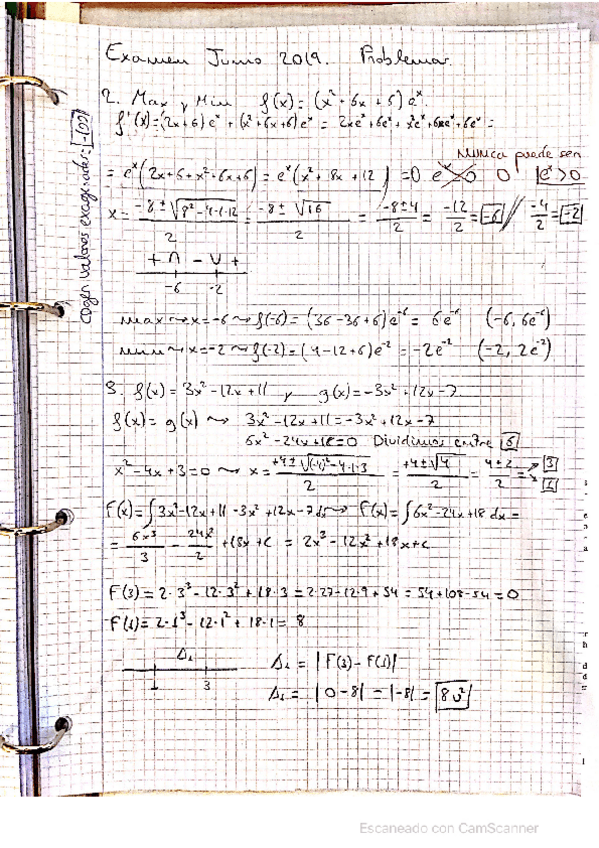 Examen Junio 2019. Problemas.
2. Max y Min f(x) = (x² + 6x + 6) eˣ.
f'(x) = (2x+6) eˣ + (x²+6x+6) eˣ = 2xeˣ + 6eˣ + x²eˣ + 6xeˣ + 6eˣ =
Nunca puede ser
= eˣ (2x+6+x²+6x+6) = eˣ (x² + 8x + 12) = 0 eˣ > 0 0 |eˣ > 0
x = (-8 ± √(8² - 4·1·12))/2 = (-8 ± √16)/2 = (-8±4)/2 = -12/2 = -6 // -4/2 = -2
+ ∩ - ∪ +
-6 -2
max → x = -6 → f(-6) = (36 - 36 + 6) e⁻⁶ = 6e⁻⁶ (-6, 6e⁻⁶)
min → x = -2 → f(-2) = (4 - 12 + 6) e⁻² = -2e⁻² (-2, 2e⁻²)
3. f(x) = 3x² - 12x + 11 y g(x) = -3x² + 12x - 7
f(x) = g(x) → 3x² - 12x + 11 = -3x² + 12x - 7
6x² - 24x + 18 = 0 Dividimos entre 6
x² - 4x + 3 = 0 → x = (+4 ± √((-4)² - 4·1·3))/2 = (+4 ± √4)/2 = (4 ± 2)/2 = 3
1
F(x) = ∫ 3x² - 12x + 11 - 3x² + 12x - 7 dx → F(x) = ∫ 6x² - 24x + 18 dx =
= 6x³/3 - 24x²/2 + 18x + c = 2x³ - 12x² + 18x + c
F(3) = 2·3³ - 12·3² + 18·3 = 2·27 - 12·9 + 54 = 54 + 108 - 54 = 0
F(1) = 2·1³ - 12·1² + 18·1 = 8
Δ₁ Δ₁ = |F(3) - F(1)|
1 3
Δ₁ = |0 - 8| = |-8| = 8 u²
Coger valores exagerados = |-100|
Escaneado con CamScanner